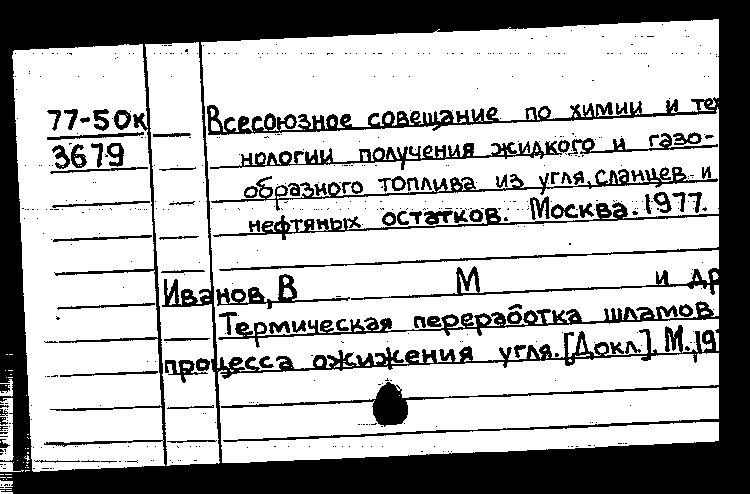 77-50к
3679
Всесоюзное совещание по химии и тех
нологии получения жидкого и газо-
образного топлива из угля, сланцев и
нефтяных остатков. Москва. 1977.
Иванов, В М и др
Термическая переработка шламов
процесса ожижения угля. [Докл.]. М., 197